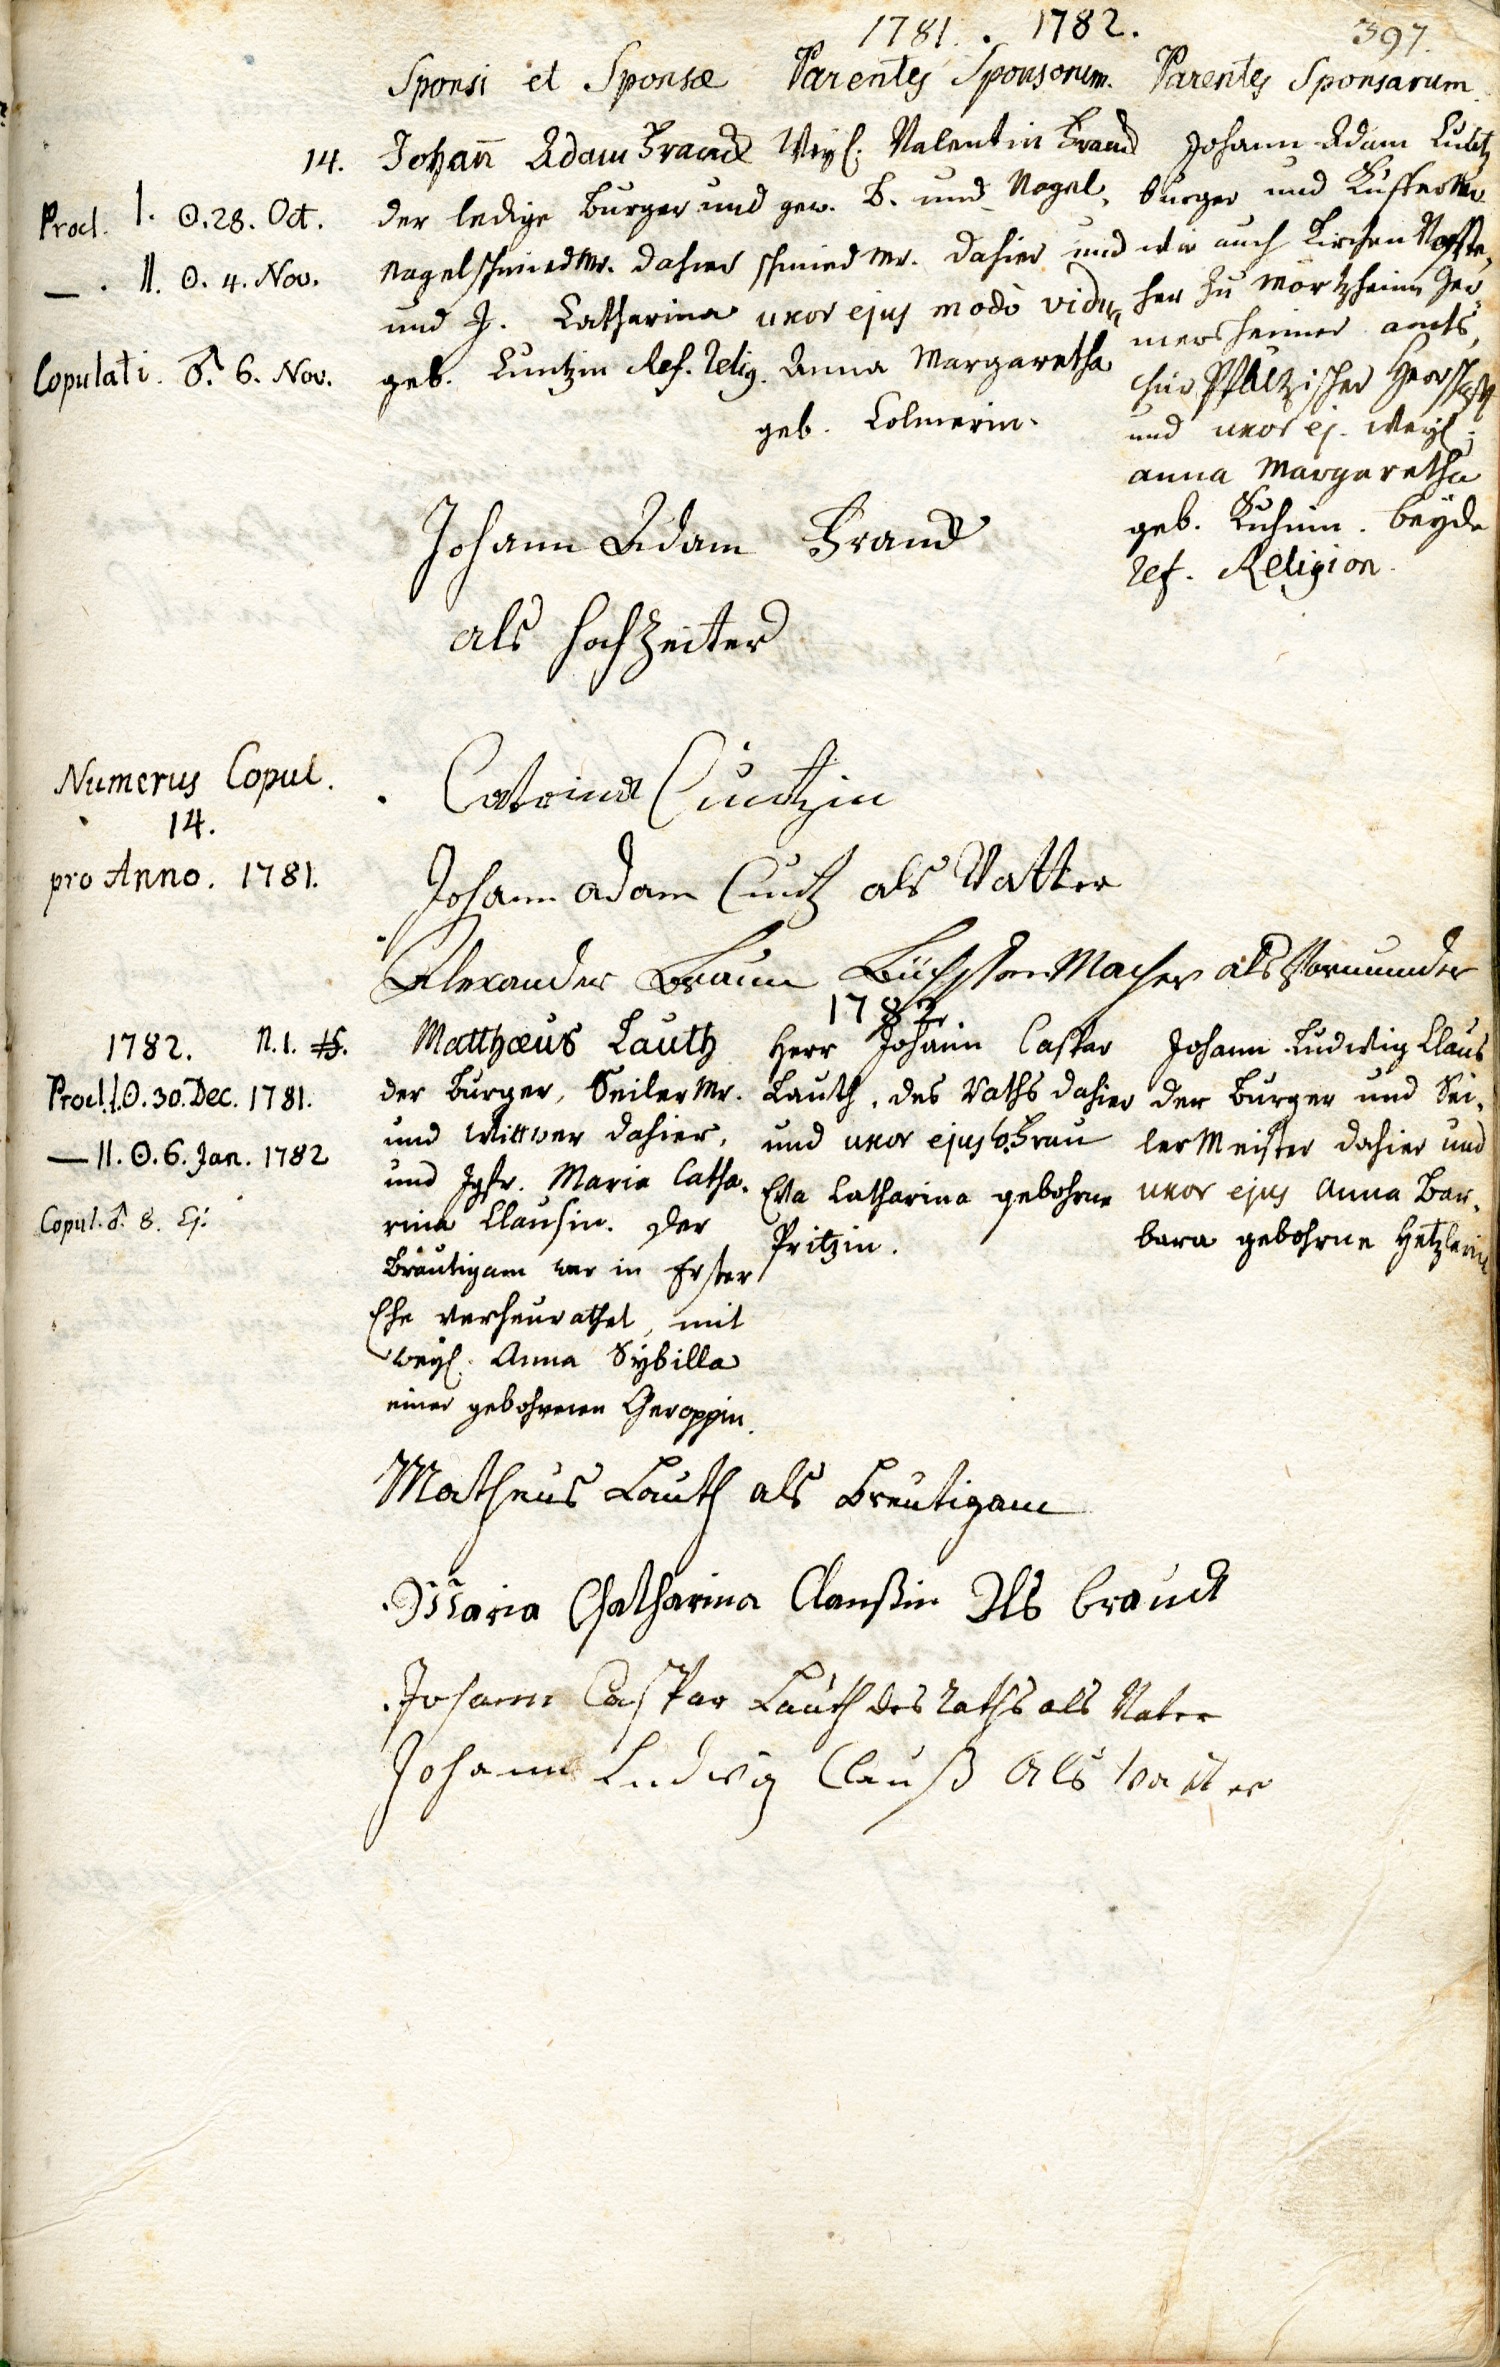 1781. 1782.
397.
Sponsi et Sponsæ
Parentes Sponsorum.
Parentes Sponsarum.
14.
Procl. I. ☉. 28. Oct.
— . II. ☉. 4. Nov.
Copulati. ♂. 6. Nov.
Johañ Adam Brandt
der ledige Burger und
Nagelschmied Mr. dahier
und J. Catharina
geb. Cuntzin Ref. Relig.
Weyl. Valentin Brand
gew. B. und Nagel-
schmied Mr. dahier und
uxor ejus modò vidua
Anna Margaretha
geb. Colmerin.
Johann Adam Cuntz
burger und Küffer Mr.
wie auch Kirchen Vorste-
her zu Mörtzheim Ger-
mersheimer amts,
Chur Pfältzischer Herrschafft
und uxor ej. weyl.
anna Margaretha
geb. Kuhnin. beyde
ref. Religion.
Johann Adam Brand
als Hochzeiter
Numerus Copul.
14.
pro Anno. 1781.
Catrina Cuntzin
Johann adam Cuntz als Vatter
Alexander Braun Büchssen Macher als Vormunder
1782.
1782. N. 1.
Procl. I. ☉. 30. Dec. 1781.
— II. ☉. 6. Jan. 1782
Copul. ♂. 8. Ej.
Matthæus Lauth
der Burger, Seiler Mr.
und Wittwer dahier,
und Jgfr. Maria Catha-
rina Clausin. Der
Bräutigam war in Erster
Ehe verheurathet, mit
weyl. Anna Sybilla
einer gebohrenen Geroppin.
Herr Johann Caspar
Lauth, des Raths dahier
und uxor ejus Frau
Eva Catharina gebohrne
Pritzin.
Johann Ludwig Claus
der Burger und Sei-
ler Meister dahier und
uxor ejus Anna Bar-
bara gebohrne Hetzlerin
Matheus Lauth als Breutigam
Maria Chatharina Claußin Als braudt
Johann Caspar Lauth des Raths als Vater
Johann Ludwig Clauß Als Vatter